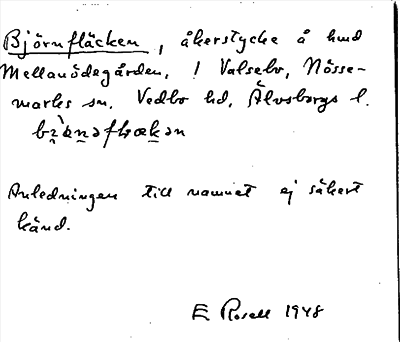 Björnfläcken, åkerstycke å hmd
Mellanödegården, 1 Valsebo, Nösse-
marks sn. Vedbo hd, Älvsborgs l.
Anledningen till namnet ej säkert
känd.
E Rosell 1948